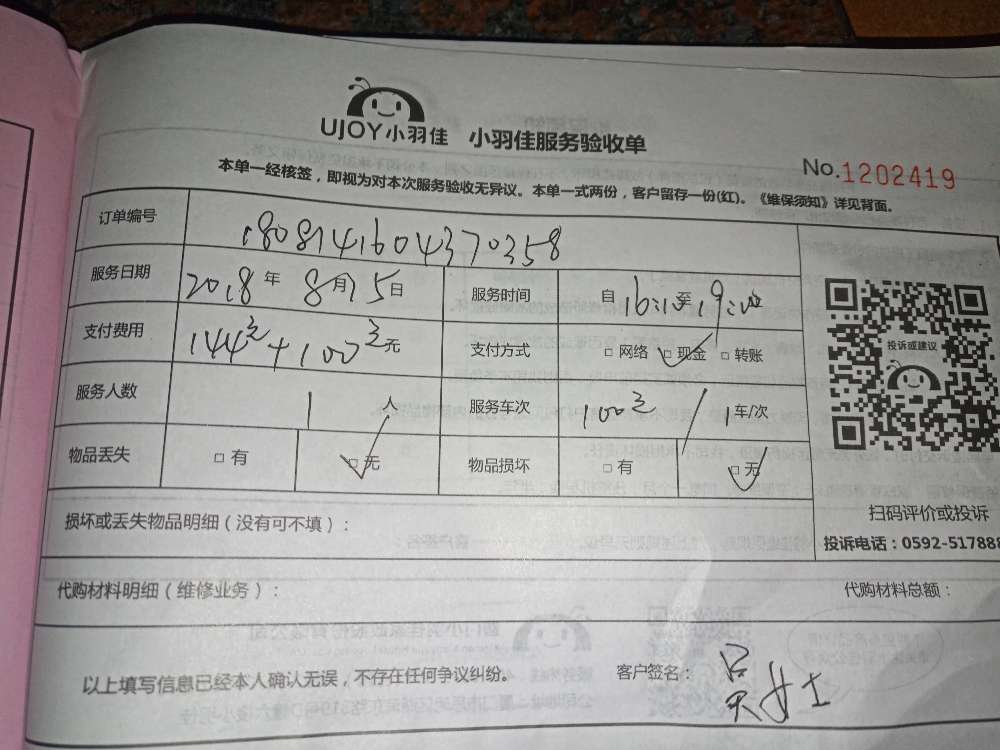 UJOY小羽佳 小羽佳服务验收单
No.1202419
本单一经核签，即视为对本次服务验收无异议。本单一式两份，客户留存一份(红)。《维保须知》详见背面。
订单编号 1808141604370358
服务日期 2018年8月15日 服务时间 自16:10至19:00
支付费用 144元+100元 支付方式 □网络 □现金 □转账
服务人数 1人 服务车次 100 1车/次
物品丢失 □有 □无 物品损坏 □有 □无
投诉或建议
扫码评价或投诉
投诉电话：0592-517888
损坏或丢失物品明细（没有可不填）：
代购材料明细（维修业务）： 代购材料总额：
以上填写信息已经本人确认无误，不存在任何争议纠纷。 客户签名：吴女士